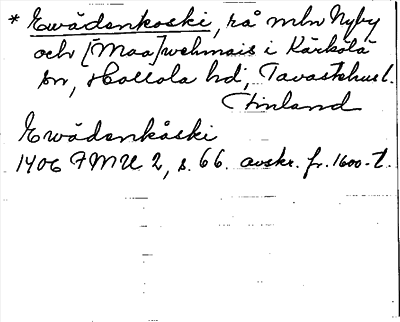 * Ewådenkoski, rå mln Nyby
och [Maa]wehmais i Kärkölä
sn, Hollola hd, Tavastehus l.
Finland
Ewådenkåski
1406 FMU 2, s. 66. avskr. fr. 1600-t.